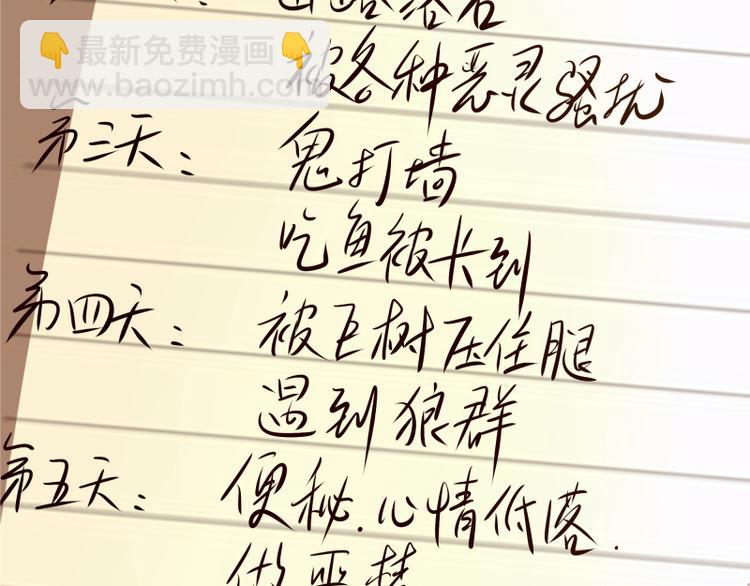 山路落石
最新免费漫画
www.baozimh.com
被各种恶灵骚扰
第三天：鬼打墙
吃鱼被卡到
第四天：被巨树压住腿
遇到狼群
第五天：便秘.心情低落.
做恶梦